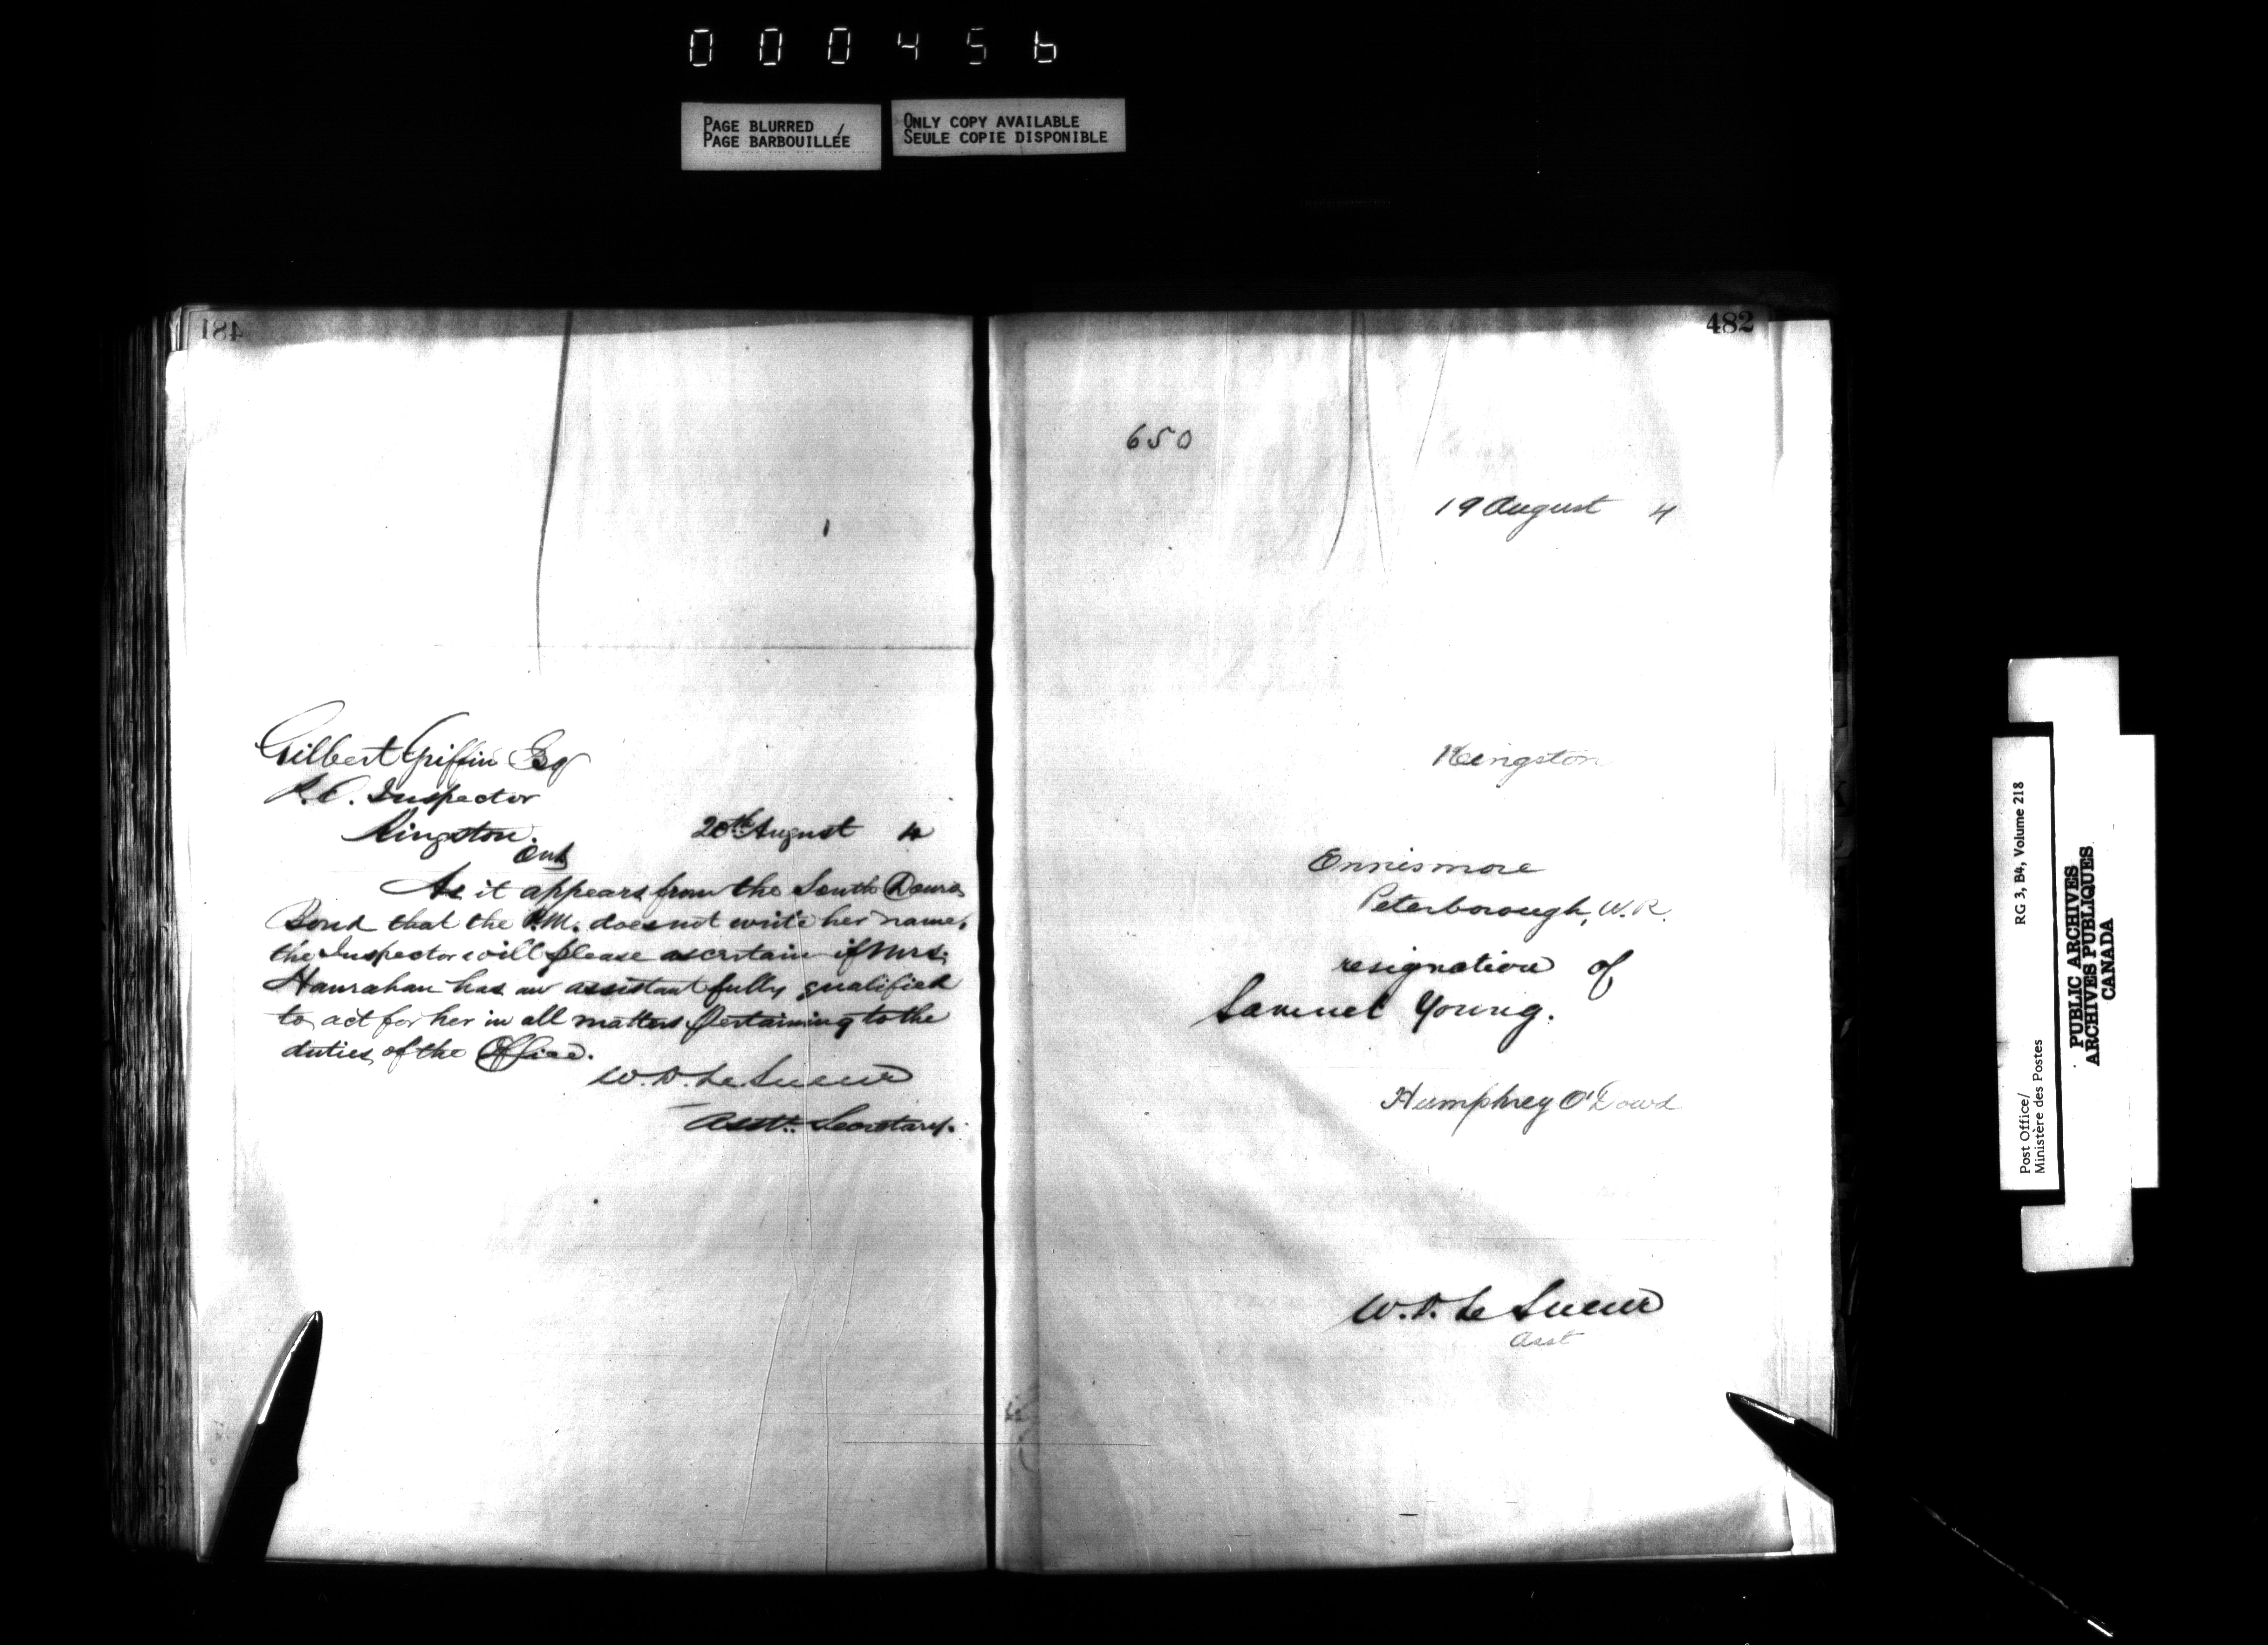 000456
PAGE BLURRED
PAGE BARBOUILLÉE
ONLY COPY AVAILABLE
SEULE COPIE DISPONIBLE
481
Gilbert Griffin Esq
P.O. Inspector
Kingston.
Ont
20th August 4
As it appears from the South Douro
Bond that the P.M. does not write her name,
the Inspector will please ascertain if Mrs.
Hanrahan has an assistant fully qualified
to act for her in all matters pertaining to the
duties of the Office.
W. D. Le Sueur
Asst. Secretary.
482
650
19 August 4
Kingston
Ennismore
Peterborough, W.R.
resignation of
Samuel Young.
Humphrey O'Dowd
W. D. Le Sueur
Asst
Post Office/
Ministère des Postes
RG 3, B4, Volume 218
PUBLIC ARCHIVES
ARCHIVES PUBLIQUES
CANADA